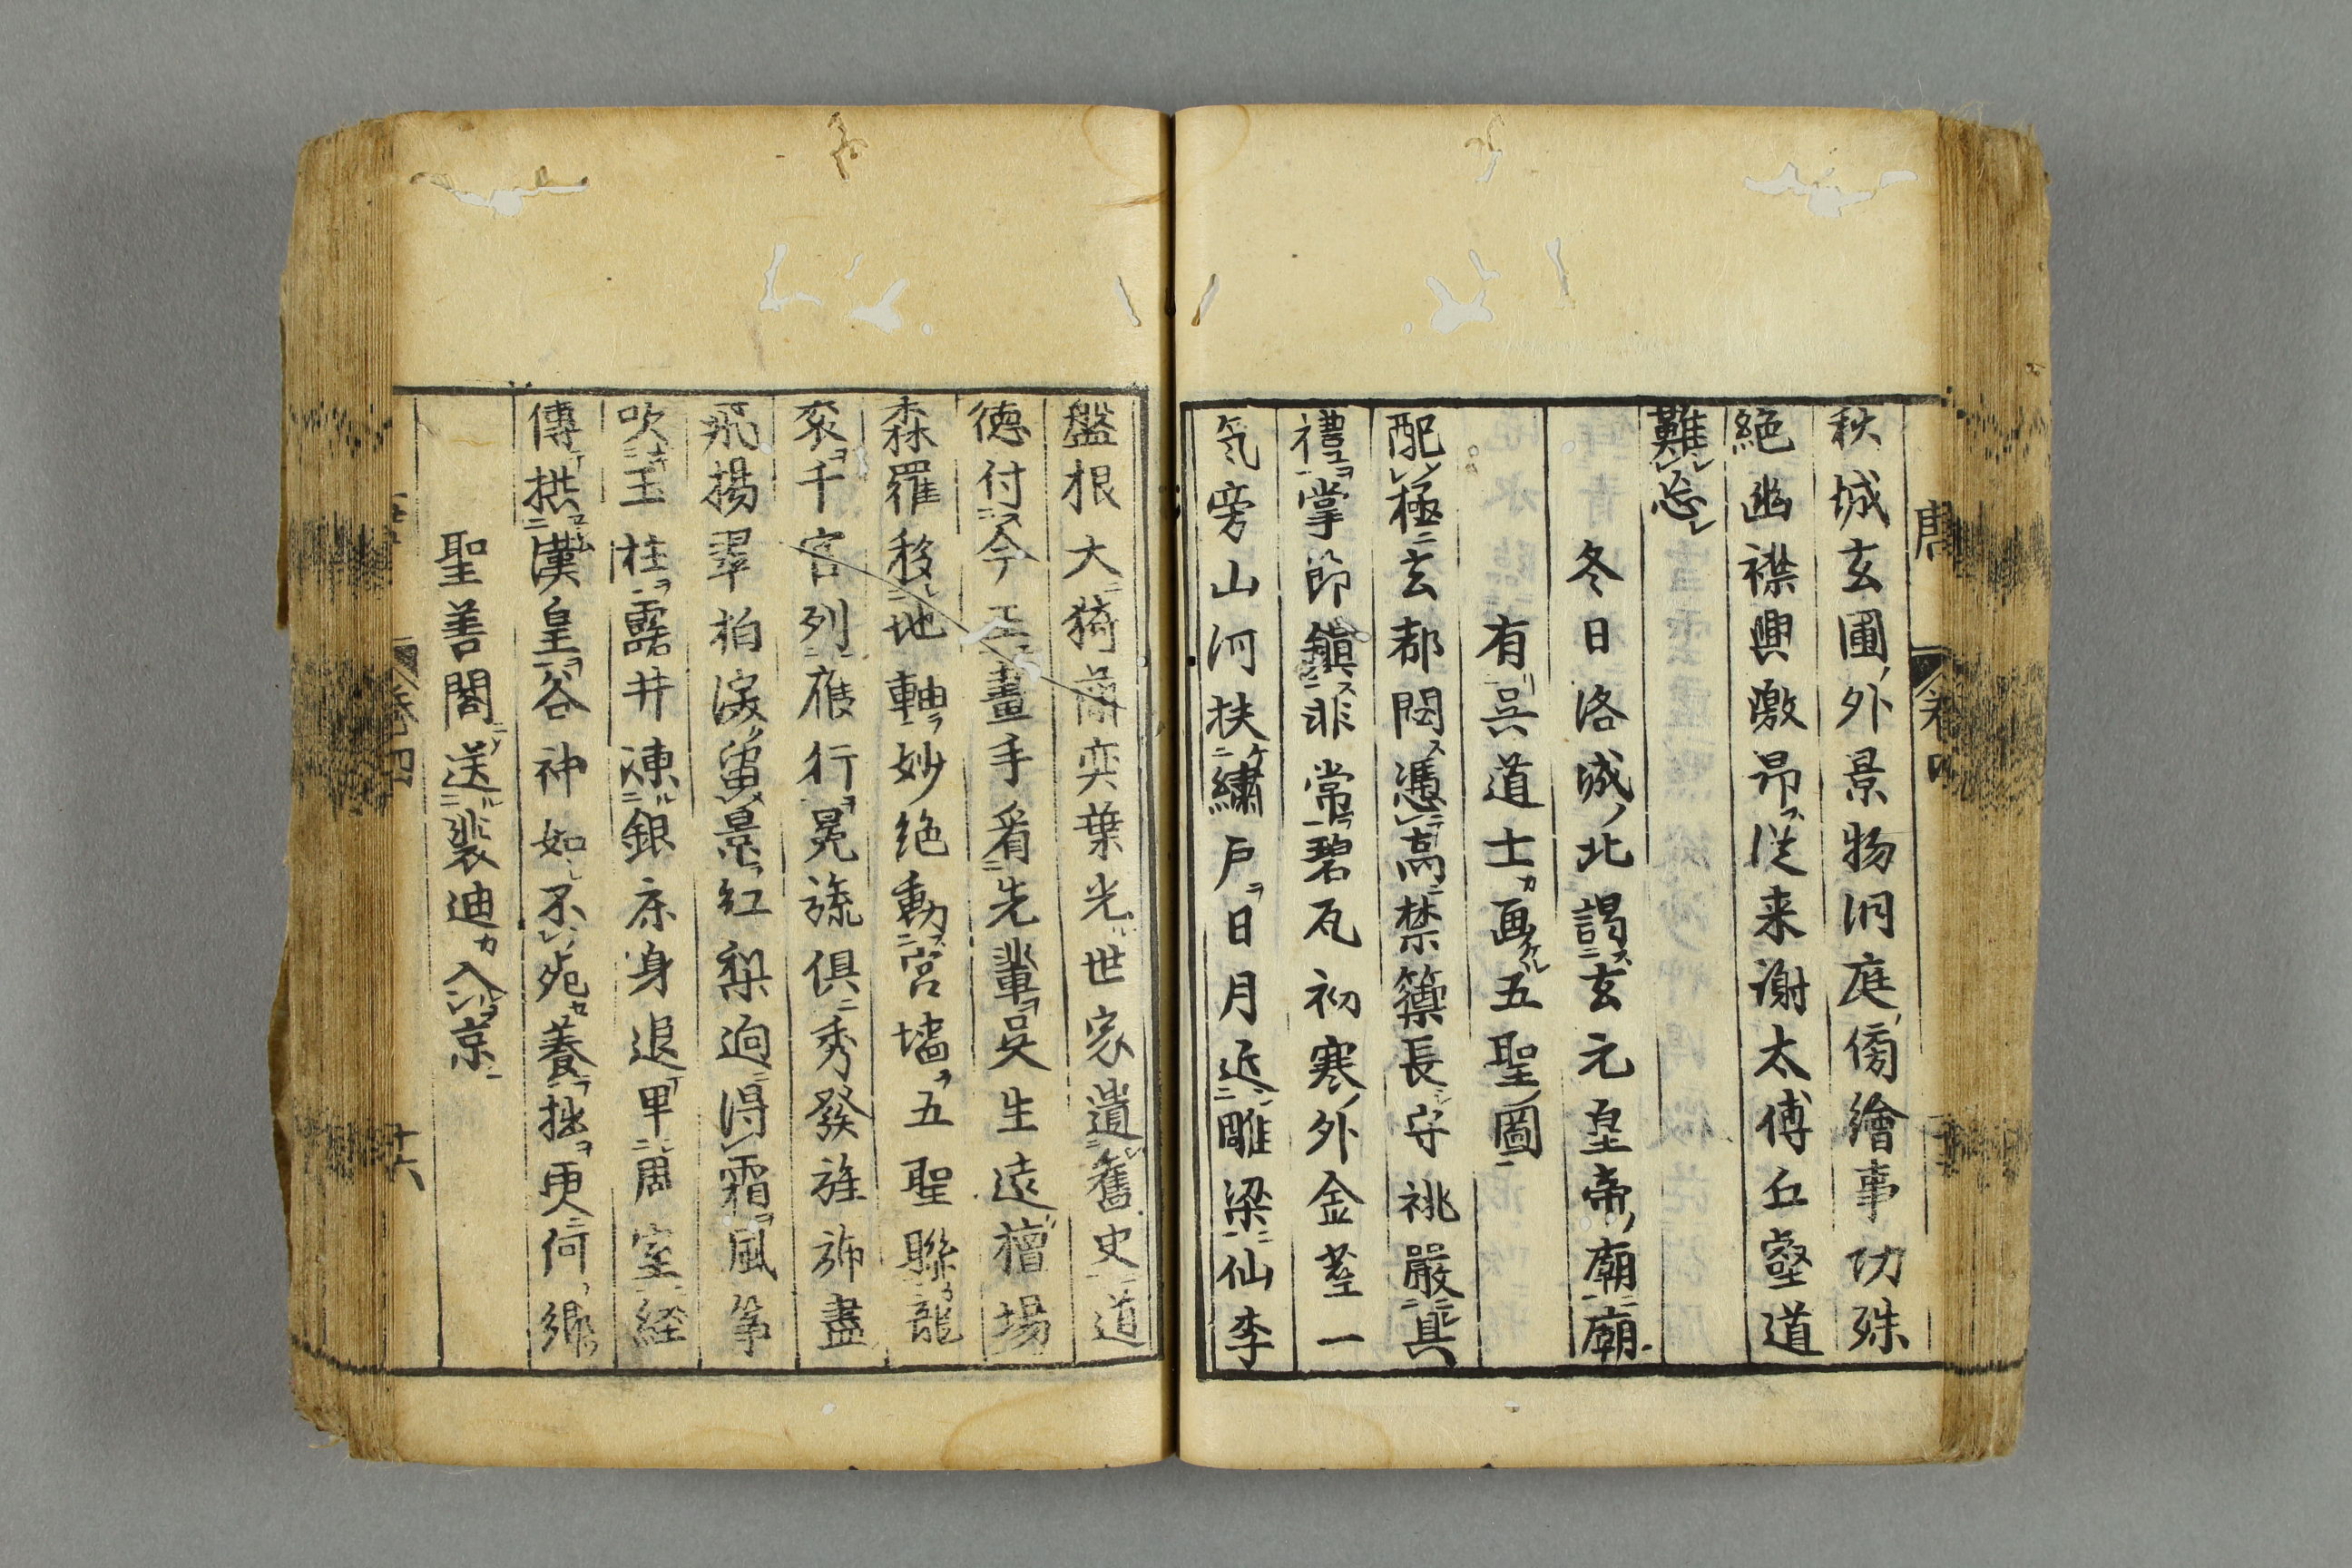 秋城玄圃外景物洞庭傍繪事功殊
絶幽襟興激昂従来謝太傅丘壑道
難忘
冬日洛城北謁玄元皇帝廟廟
有呉道士画五聖圖
配極玄都閟憑高禁籞長守祧嚴具
禮掌節鎭非常碧瓦初寒外金莖一
気旁山河扶繡戸日月近雕梁仙李
盤根大猗蘭奕葉光世家遺舊史道
徳付今王畫手看先輩吳生遠擅場
森羅移地軸妙絶動宮墻五聖聯龍
衮千官列雁行冕旒俱秀發旌斾盡
飛揚翠柏深留景紅梨迥得霜風筝
吹玉柱露井凍銀床身退卑周室経
傳拱漢皇谷神如不死養拙更何郷
聖善閣送裴迪入京